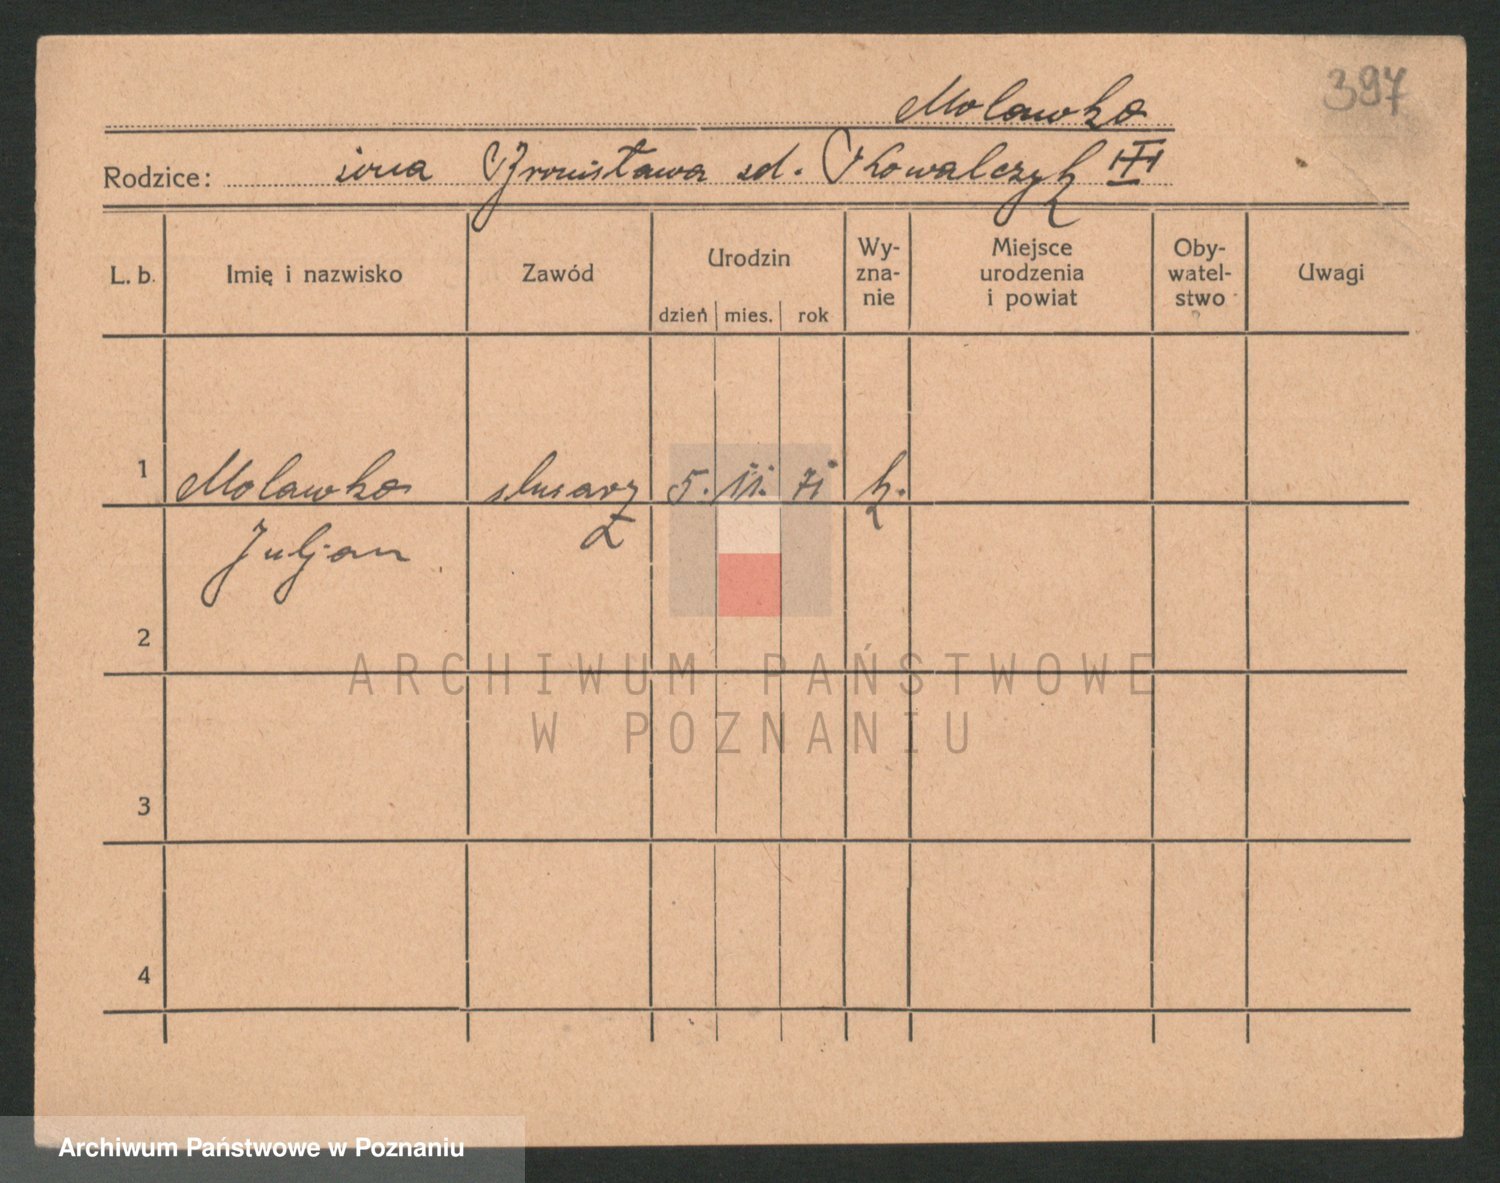 397
Molawka
Rodzice: żona Bronisława zd. Kowalczyk III
L. b. Imię i nazwisko Zawód Urodzin dzień mies. rok Wy-zna-nie Miejsce urodzenia i powiat Oby-watel-stwo Uwagi
1 Molawka ślusarz 5. 11. 71 k.
Juljan
2
3
4
ARCHIWUM PAŃSTWOWE
W POZNANIU
Archiwum Państwowe w Poznaniu